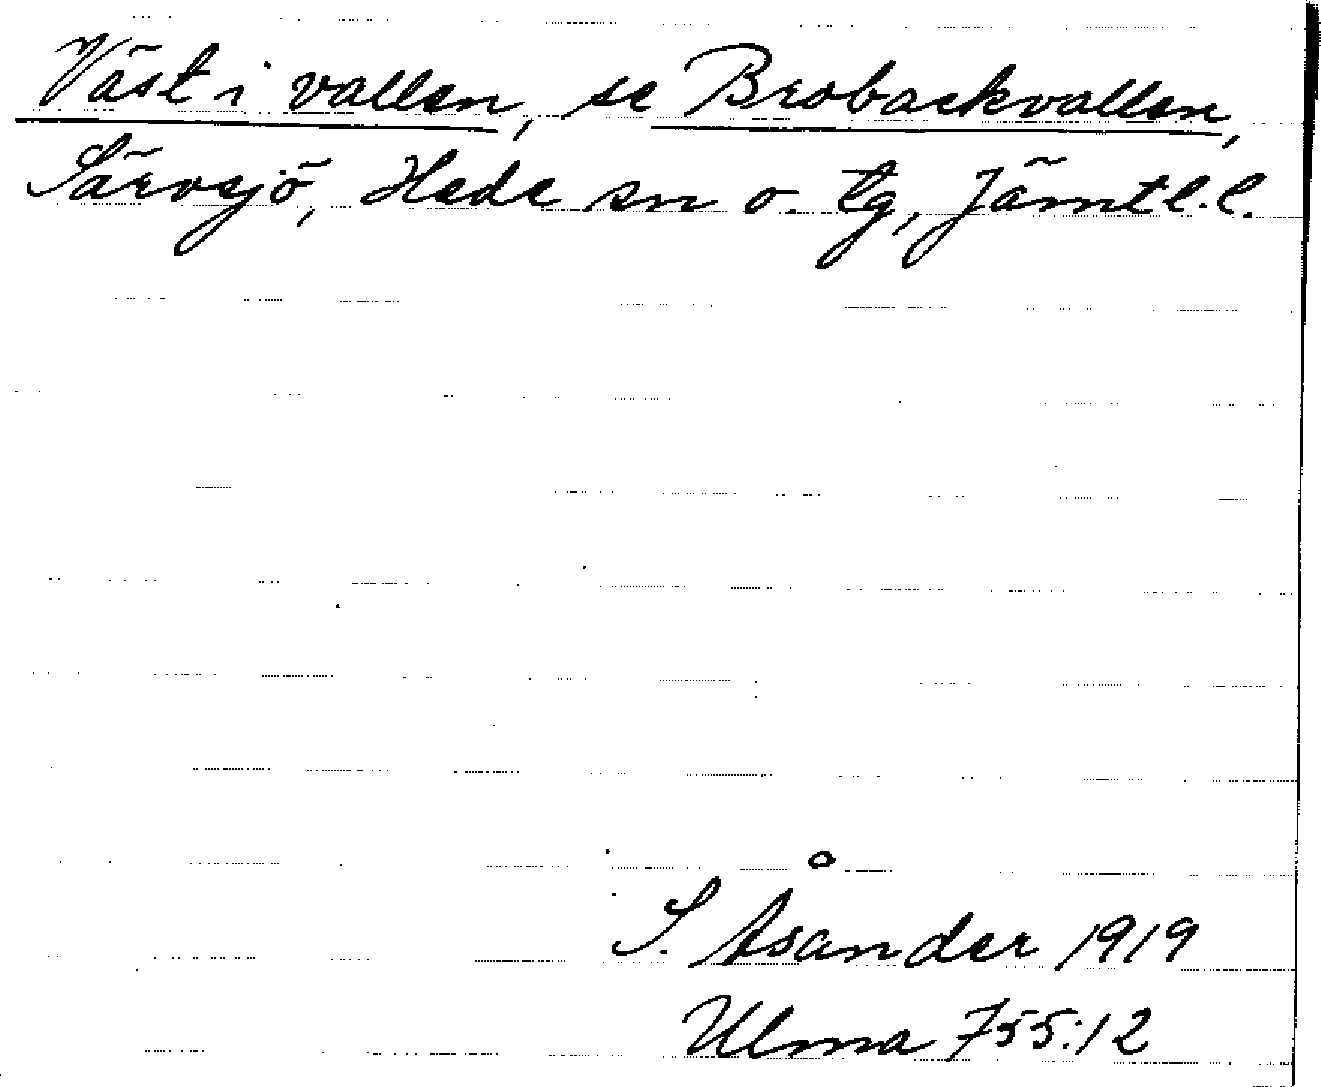 Väst i vallen, se Brobackvallen,
Särvsjö, Hede sn o. tg, Jämtl. l.
S. Åsander 1919
Ulma 755:12